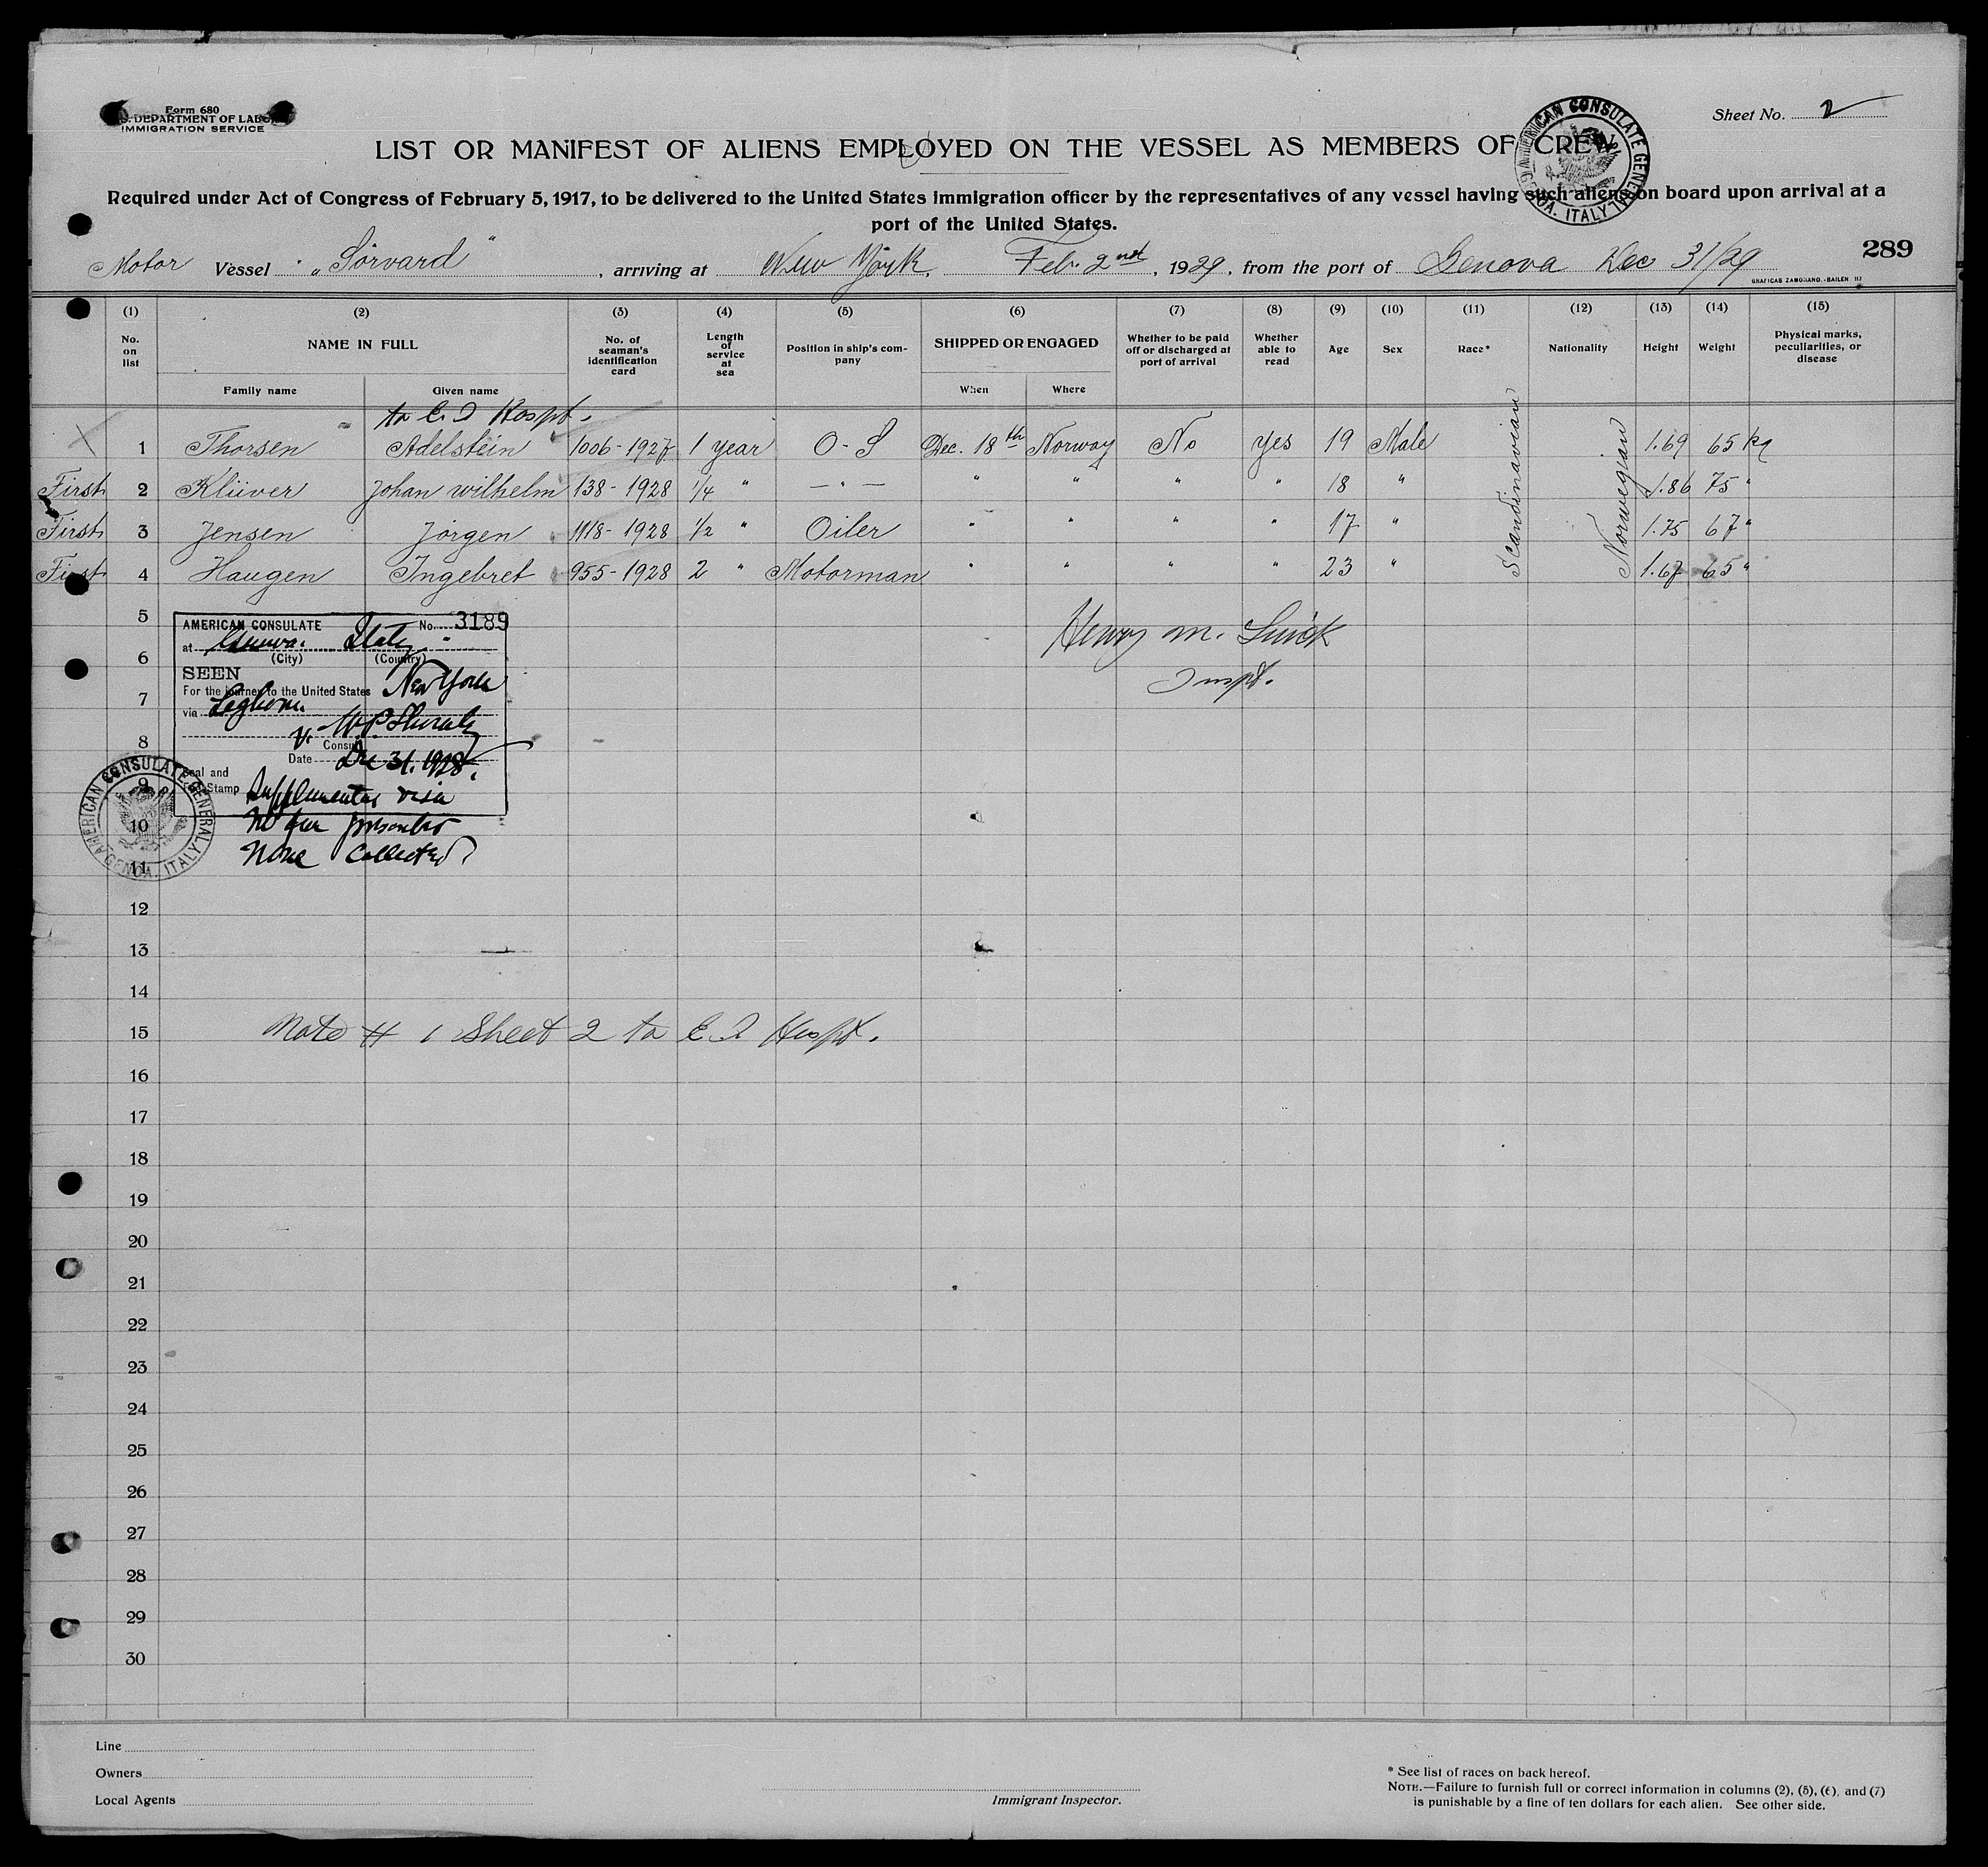 Form 680
U.S. DEPARTMENT OF LABOR
IMMIGRATION SERVICE
Sheet No. 2
LIST OR MANIFEST OF ALIENS EMPLOYED ON THE VESSEL AS MEMBERS OF CREW
AMERICAN CONSULATE GENERAL GENOA. ITALY
Required under Act of Congress of February 5, 1917, to be delivered to the United States immigration officer by the representatives of any vessel having such aliens on board upon arrival at a
port of the United States.
289
Motor Vessel "Sörvard", arriving at New York, Feb. 2nd, 1929, from the port of Genova Dec 31/29
GRAFICAS ZAMORANO.-BAILEN 117
(1) (2) (3) (4) (5) (6) (7) (8) (9) (10) (11) (12) (13) (14) (15)
No. on list NAME IN FULL No. of seaman's identification card Length of service at sea Position in ship's company SHIPPED OR ENGAGED Whether to be paid off or discharged at port of arrival Whether able to read Age Sex Race* Nationality Height Weight Physical marks, peculiarities, or disease
Family name Given name When Where
to E. I Hospt.
1 Thorsen Adelstein 1006-1927 1 year O-S Dec. 18th Norway No Yes 19 Male Scandinavian Norwegian 1.69 65 kg
First 2 Klüver Johan Wilhelm 138-1928 1/4 " -"- " " " " 18 " 1.86 75 "
First 3 Jensen Jörgen 1118-1928 1/2 " Oiler " " " " 17 " 1.75 67 "
First 4 Haugen Ingebret 955-1928 2 " Motorman " " " " 23 " 1.67 65 "
5
6
7
8
9
10
11
AMERICAN CONSULATE No. 3189
at Genova. Italy.
(City) (Country)
SEEN
For the journey to the United States New York
via Leghorn
V. Consul
Date Dec 31. 1928.
Seal and
Fee Stamp
Supplemental visa
No fee prescribed
None Collected
AMERICAN CONSULATE GENERAL GENOA. ITALY
Henry M.
Inspt.
12
13
14
15 Note # 1 Sheet 2 to E I Hospt.
16
17
18
19
20
21
22
23
24
25
26
27
28
29
30
Line
Owners
Local Agents
Immigrant Inspector.
* See list of races on back hereof.
NOTE.—Failure to furnish full or correct information in columns (2), (5), (6), and (7)
is punishable by a fine of ten dollars for each alien. See other side.